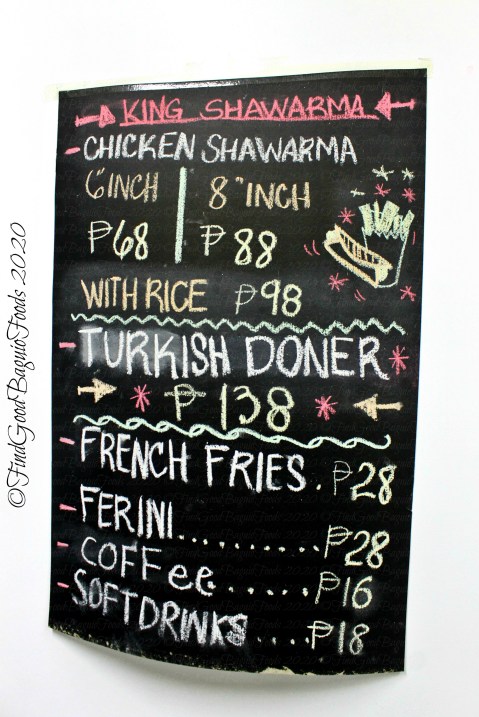 KING SHAWARMA
- CHICKEN SHAWARMA
6"INCH 8"INCH
₱68 ₱88
WITH RICE ₱98
- TURKISH DONER
₱138
- FRENCH FRIES. ₱28
- FERINI.......... ₱28
- COFFee...... ₱16
- SOFTDRINKS.... ₱18
©FindGoodBaguioFoods 2020